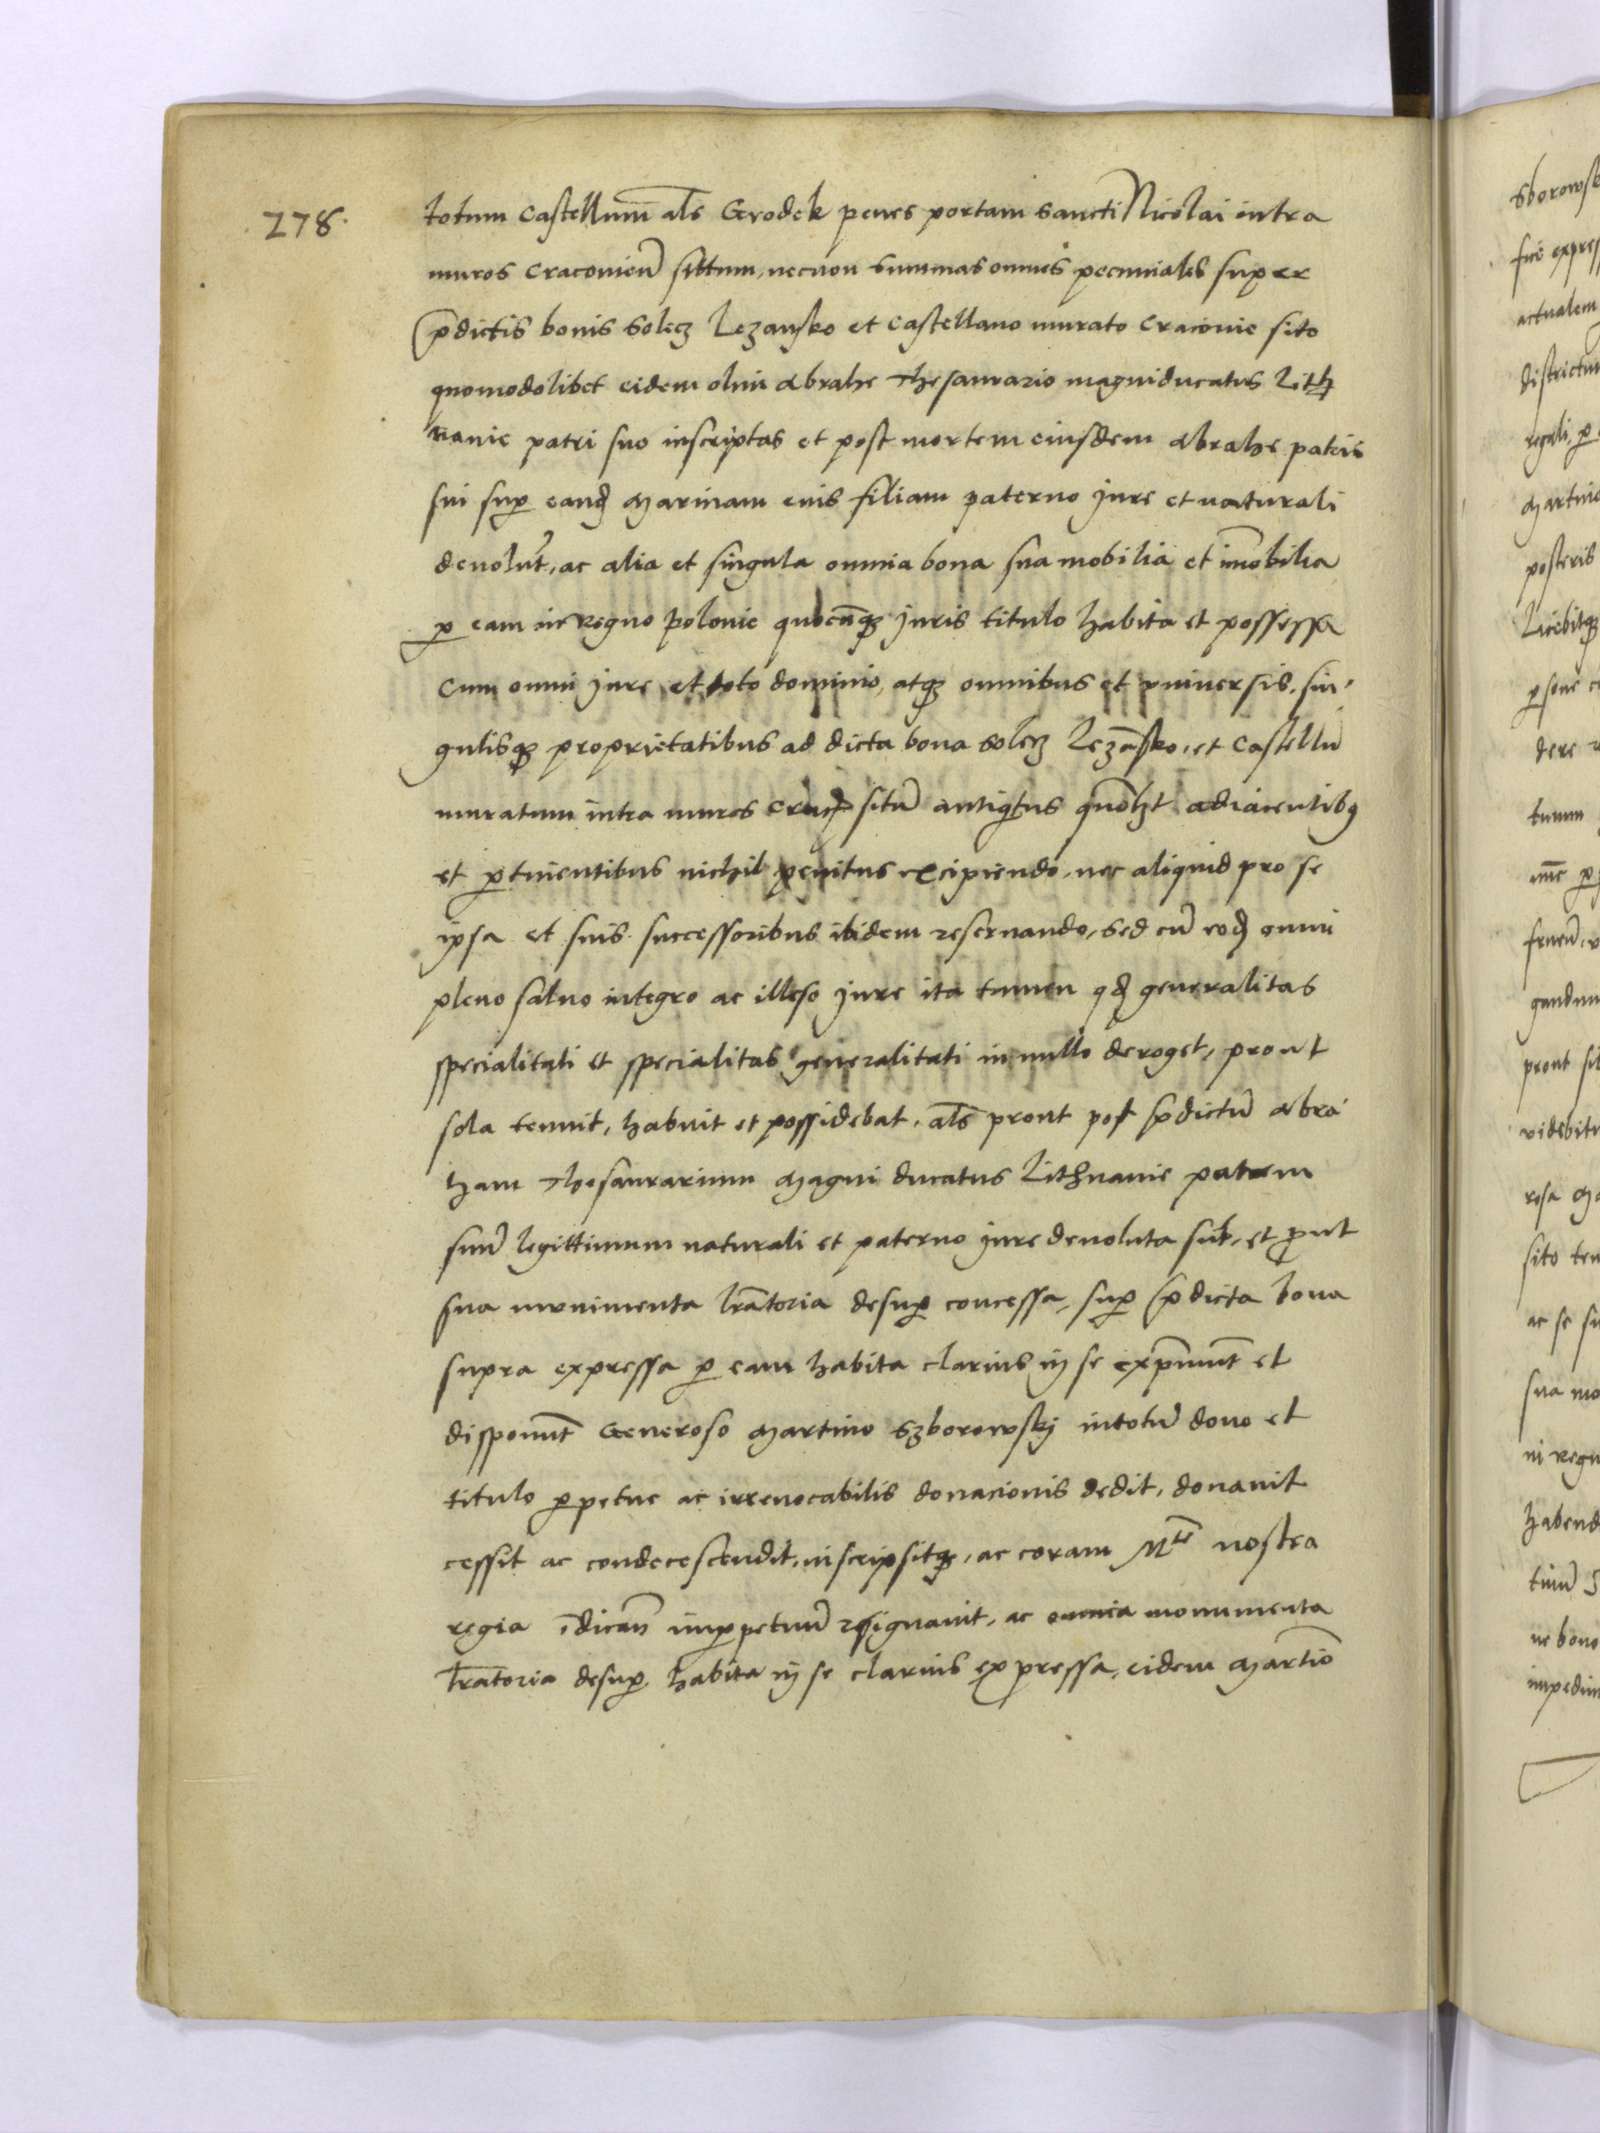 278.
totum castellum̄ als̄ Grodek penes portam sancti Nicolai intra
muros cracovien̄ sittum, necnon summas omnes pecuniales super
p̄dictis bonis solecz Lezansko et castellano murato cracovie sito
quomodolibet eidem olim abrahe Thesaurario magniducatus Lith
vanie patri suo inscriptas et post mortem eiusdem abrahe patris
sui sup eand marinam eius filiam paterno jure et naturali
devolut̄, ac alia et singula omnia bona sua mobilia et im̄obilia
p eam in Regno polonie quocūq juris titulo habita et possessa
cum omni jure et toto dominio, atq omnibus et universis, sin
gulisq proprietatibus ad dicta bona solecz Lezāsko, et castellū
muratum intra muros crac sitū antiqtus quōlt adiacentibq
et ptinentibus nichil penitus excipiendo, nec aliquid pro se
ipsa et suis successoribus ibidem reservando, sed cū eod omni
pleno salvo integro ac illeso jure ita tamen qd generalitas
specialitati et specialitas generalitati in nullo deroget, prout
sola tenuit, habuit et possidebat, als̄ prout post p̄dictū abra
ham Thesaurarium Magni ducatus Lithuanie patrem
suū legittimum naturali et paterno jure devoluta sūt, et p̄ut
sua munimenta lr̄atoria desup concessa, sup p̄dicta bona
supra expressa p eam habita clarius in se exp̄imunt̄ et
disponunt̄ Generoso Martino Szborowskj intotū dono et
titulo ppetue ac irrevocabilis donacionis dedit, donavit
cessit ac condecescendit, inscripsitq, ac coram Mte nostra
regia īdican̄ imppetuū resignavit, ac omnia monumenta
lr̄atoria desup habita in se clarius expressa, eidem martīo